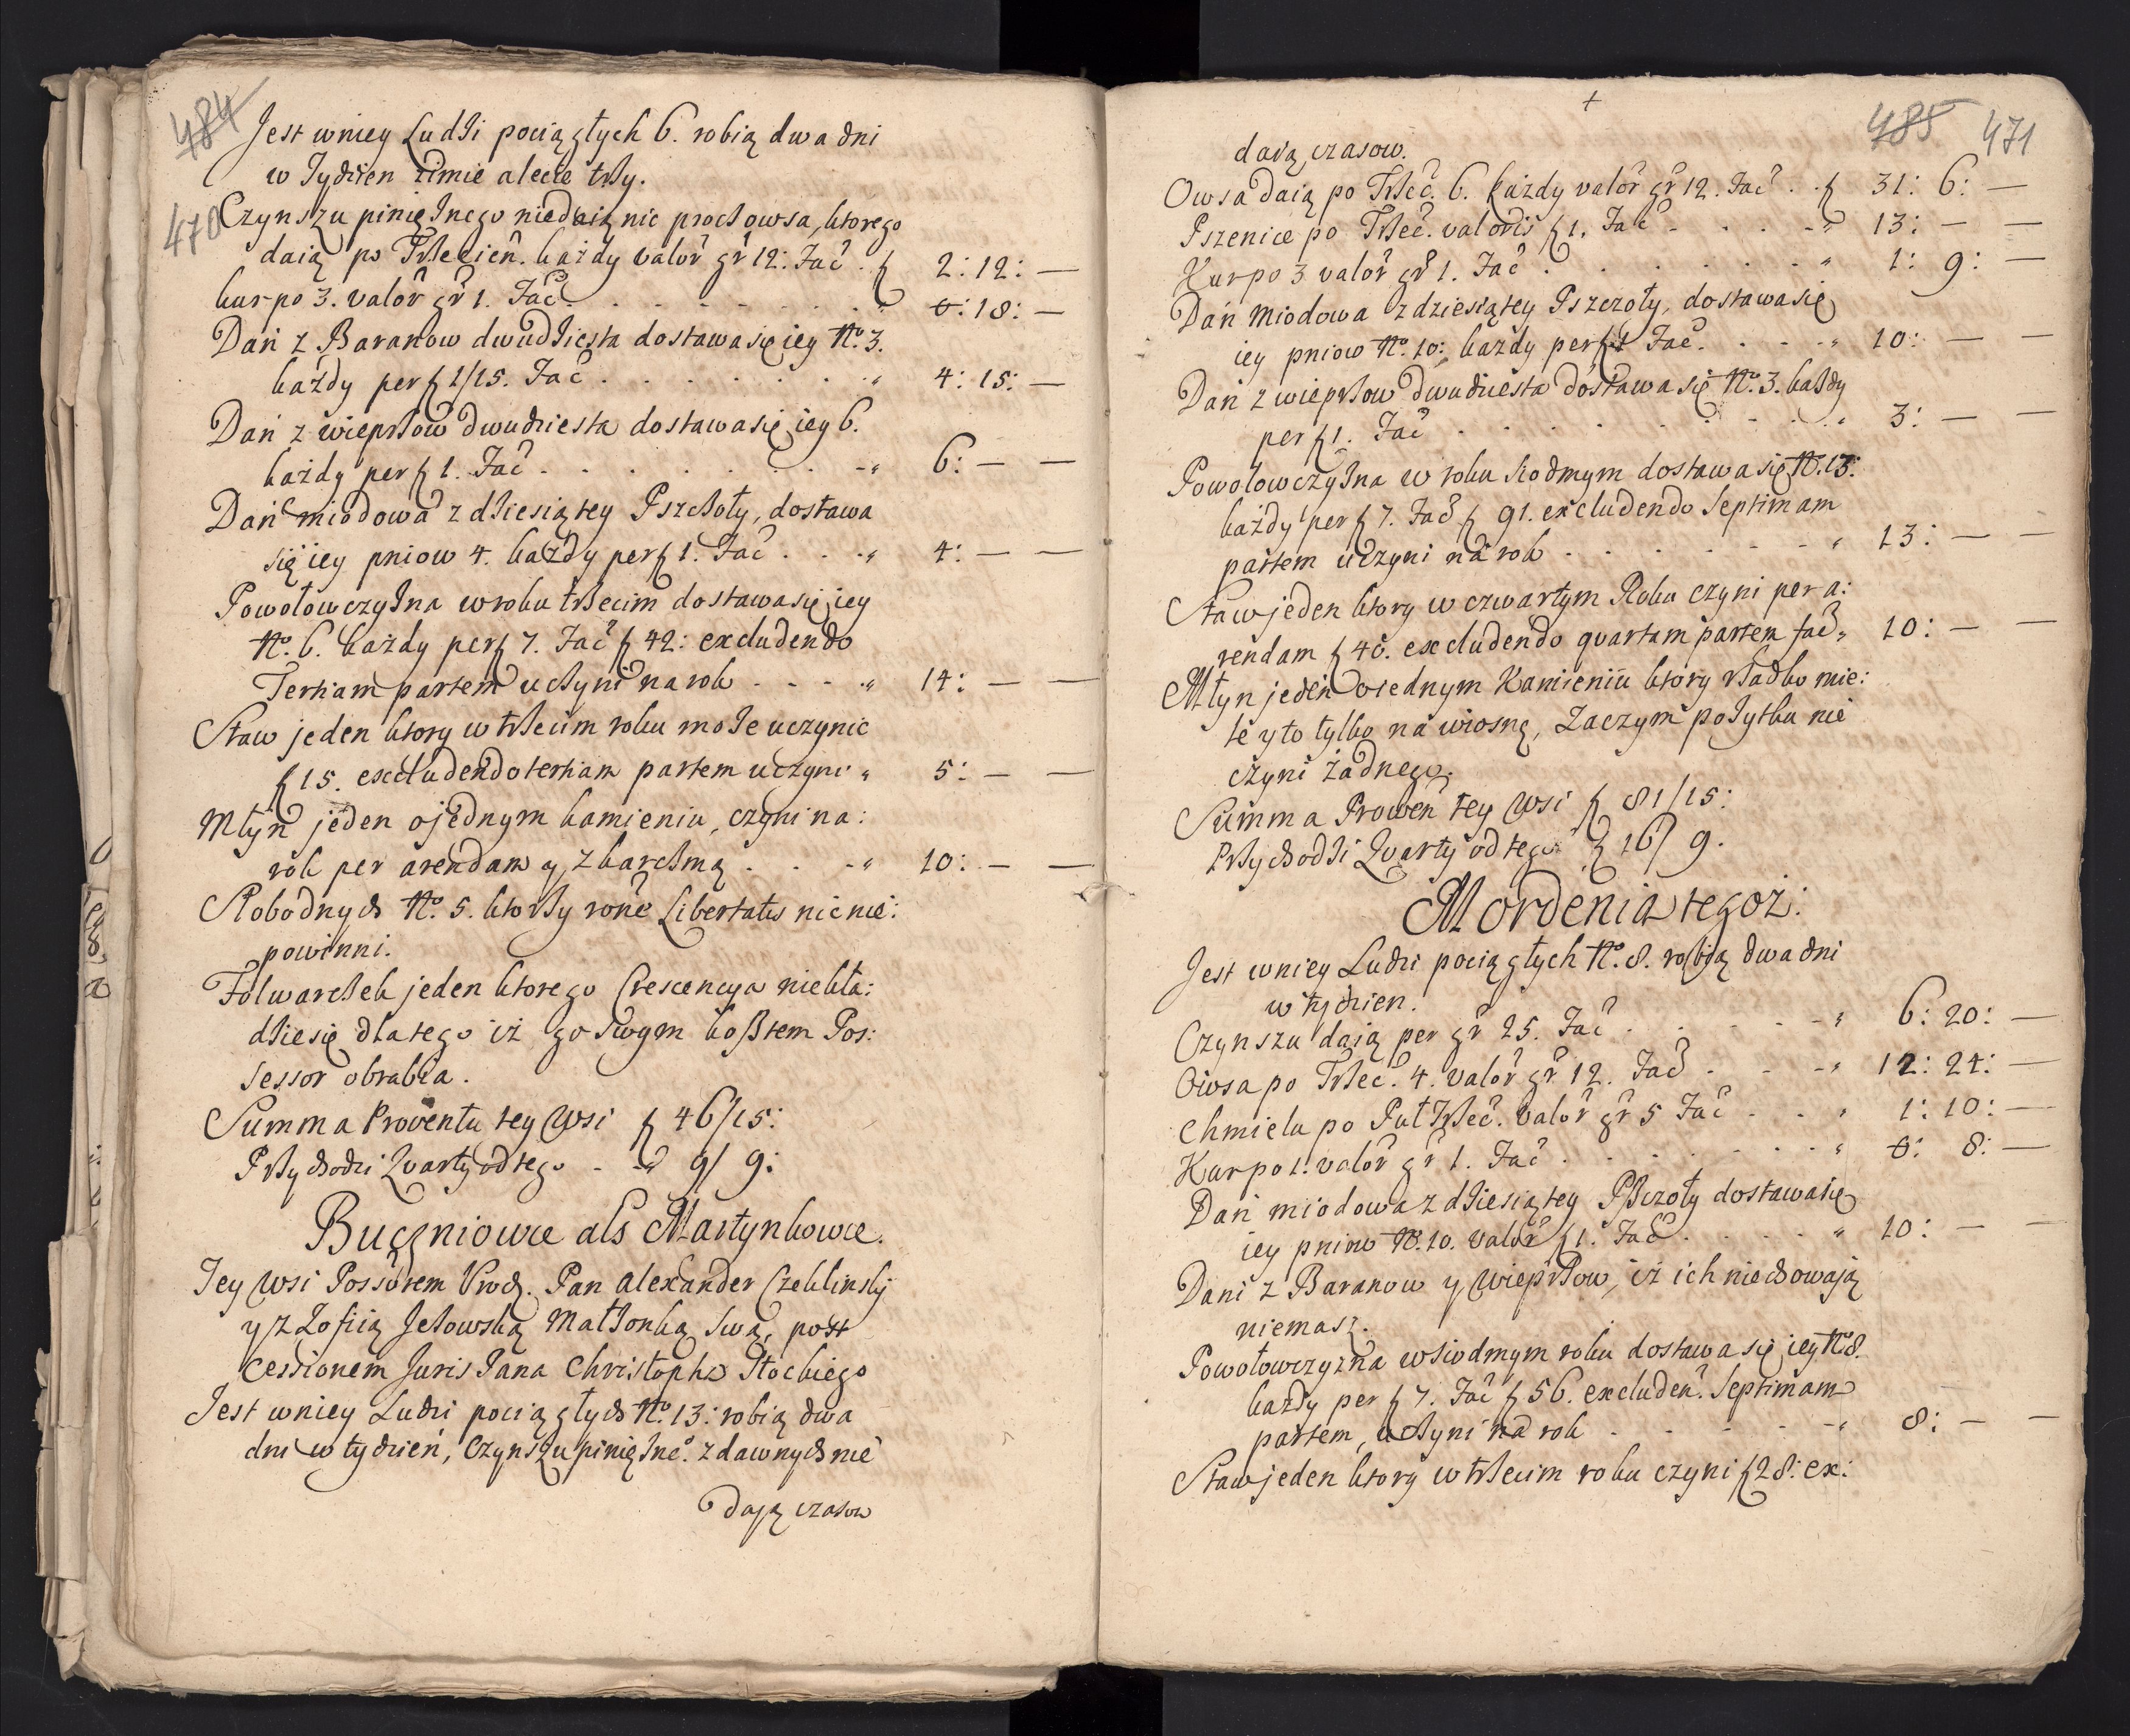 484
Jest wniey Ludzi pociągłych 6. robią dwa dni
w Tydzien zimie a lecie trzy.
470
Czynszu pinięznego niedaią nic procz owsa, ktorego
daią po Trzecień. kazdy valor̃ gr̃ 12: Fac̃ . ƒ 2: 12: —
kur po 3. valor̃ gr̃ 1. Fac̃ . . . . . . . „ 0: 18: —
Dań z Baranow dwudziesta dostawa się iey No. 3.
każdy per ƒ 1/15. Fac̃ . . . . . . . „ 4: 15: —
Dań z wieprzow dwudziesta dostawa się iey 6.
każdy per ƒ 1. Fac̃ . . . . . . . - „ 6: — —
Dań miodowa z dziesiątey Pszczoły, dostawa
się iey pniow 4. każdy per ƒ 1. Fac̃ . . . „ 4: — —
Powołowczyzna w roku trzecim dostawa się iey
No. 6. każdy per ƒ 7. Fac̃ ƒ 42: excludendo
Tertiam partem uczyni na rok - - - „ 14: — —
Staw jeden ktory w trzecim roku moze uczynic
ƒ 15. excludendo tertiam partem uczyni „ 5: — —
Młyn jeden o jednym kamieniu, czyni na:
rok per arendam y z karczmą . . - „ 10: — —
Słobodnych No. 5. ktorzy roñe Libertatis nic nie:
powinni.
Folwarczek jeden ktorego Crescencya niekła:
dzie się dlatego iż go swym kosztem Pos:
sessor obrabia.
Summa Proventu tey Wsi ƒ 46/15:
Przychodzi Qvarty od tego - - „ 9/ 9:
Buczniowce als Martynkowce.
Tey Wsi Possorem Vroch. Pan Alexander Czeklinsky
y z Zofiią Jezowską Małzonką swą, post
cessionem Juris Pana Christopha Stockiego
Jest wniey Ludzi pociągłych No. 13: robią dwa
dni w tydzień, Czynszu pinięzne͠. z dawnych nie
daią czasow
485 471
daią czasow.
Owsa daią po Trzec̃. 6. każdy valor̃ gr̃ 12. Fac̃ . . ƒ 31: 6: —
Pszenice po Trzec̃. valoris ƒ 1. Fac̃ - . . . - „ 13: — —
Kur po 3 valor̃ gr̃ 1. Fac̃ . . . . . . . „ 1: 9: —
Dań miodowa z dziesiątey Pszczoły, dostawa się
iey pniow No. 10: każdy per ƒ 1 Fac̃. . - - „ 10: — —
Dań z wieprzow dwudziesta dostawa się No. 3. każdy
per ƒ 1. Fac̃ . . . . . . . . „ 3: — —
Powołowczyzna w roku siodmym dostawa się No. 13:
każdy per ƒ 7. Fac̃ ƒ 91. excludendo Septimam
partem uczyni na rok . . . . . - - „ 13: — —
Staw jeden ktory w czwartym Roku czyni per a:
rendam ƒ 40. excludendo qvartam partem fac̃ „ 10: — —
Młyn jeden o iednym Kamieniu ktory rzadko mie:
le y to tylko na wiosnę, Zaczym pozytku nie
czyni żadnego.
Summa Proweñ tey Wsi ƒ 81/15:
Przychodzi Qvarty od tego ƒ 16/ 9.
Mordenia tegoż:
Jest wniey Ludzi pociągłych No. 8. robią dwa dni
w tydzien.
Czynszu daią per gr̃ 25. Fac̃ . . - - - „ 6: 20: —
Owsa po Trzec̃. 4. valor̃ gr̃ 12. Fac̃ - - - „ 12: 24: —
Chmielu po Puł Trzec̃. valor̃ gr̃ 5 Fac̃ - . „ 1: 10: —
Kur po 1. valor̃ gr̃ 1. Fac̃ . . . . . . . „ 0: 8: —
Dań miodowa z dziesiątey Pszczoły dostawa się
iey pniow No. 10. valor̃ ƒ 1. Fac̃ . . . . „ 10: — —
Dani z Baranow y Wieprzow, iż ich niechowaią
niemasz.
Powołowczyzna w siodmym roku dostawa się iey No 8.
każdy per ƒ 7. Fac̃ ƒ 56. excludeñ. Septimam
partem, uczyni na rok . - - - - „ 8: — —
Staw jeden ktory w trzecim roku czyni ƒ 28: ex: